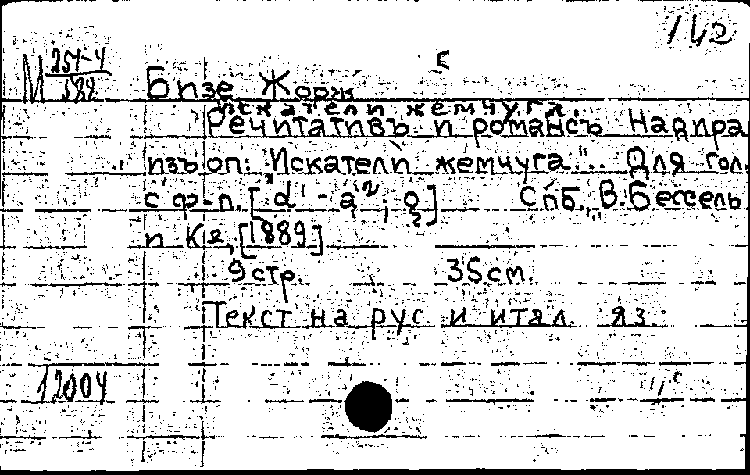 142
М 254-4
588
Бизе Жорж
Искатели жемчуга.
Речитативъ и романсъ Надира
изъ оп. "Искатели жемчуга"... Для гол.
с ф-п. [d¹ - a²; ]. СПБ., В. Бессель
и К°, [1889]
9 стр. 35 см.
Текст на рус и итал яз.
12004